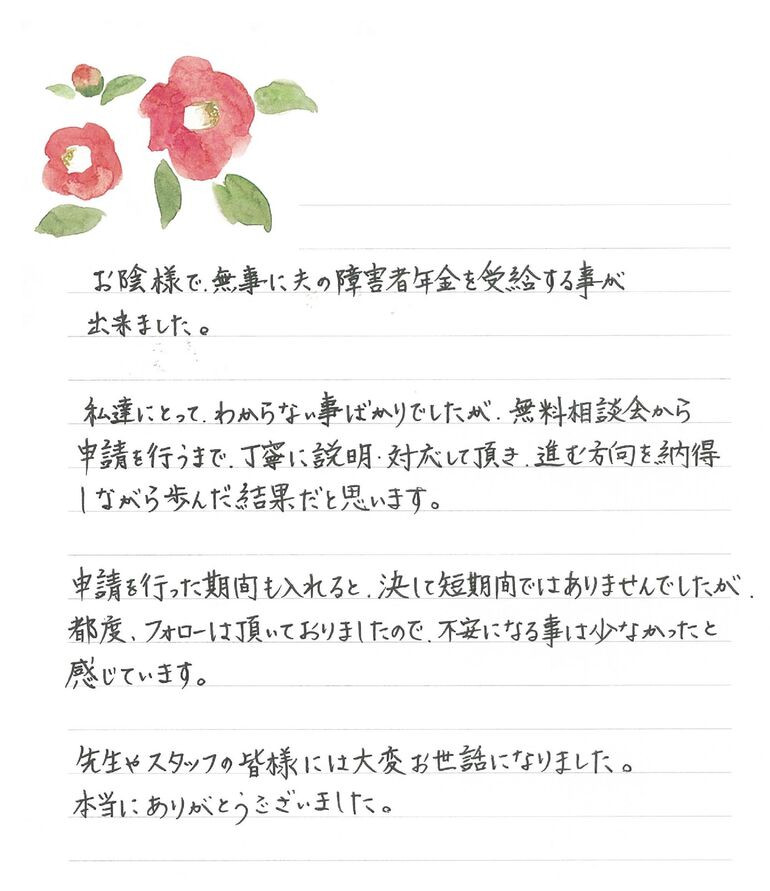 お陰様で、無事に夫の障害者年金を受給する事が
出来ました。
私達にとって、わからない事ばかりでしたが、無料相談会から
申請を行うまで、丁寧に説明・対応して頂き、進む方向を納得
しながら歩んだ結果だと思います。
申請を行った期間も入れると、決して短期間ではありませんでしたが、
都度、フォローは頂いておりましたので、不安になる事は少なかったと
感じています。
先生やスタッフの皆様には大変お世話になりました。
本当にありがとうございました。